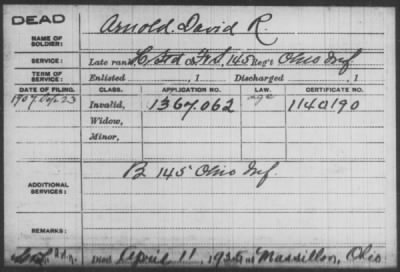 DEAD
NAME OF SOLDIER: Arnold, David R.
SERVICE: Late rank, F&S, 145 Reg't Ohio Inf
TERM OF SERVICE: Enlisted , 1 Discharged , 1
DATE OF FILING. CLASS. APPLICATION NO. LAW. CERTIFICATE NO.
1907 23 Invalid, 1367.062 age 1140190
Widow,
Minor,
ADDITIONAL SERVICES: B 145" Ohio Inf.
REMARKS:
Died April 11, 1925 at Massillon, Ohio